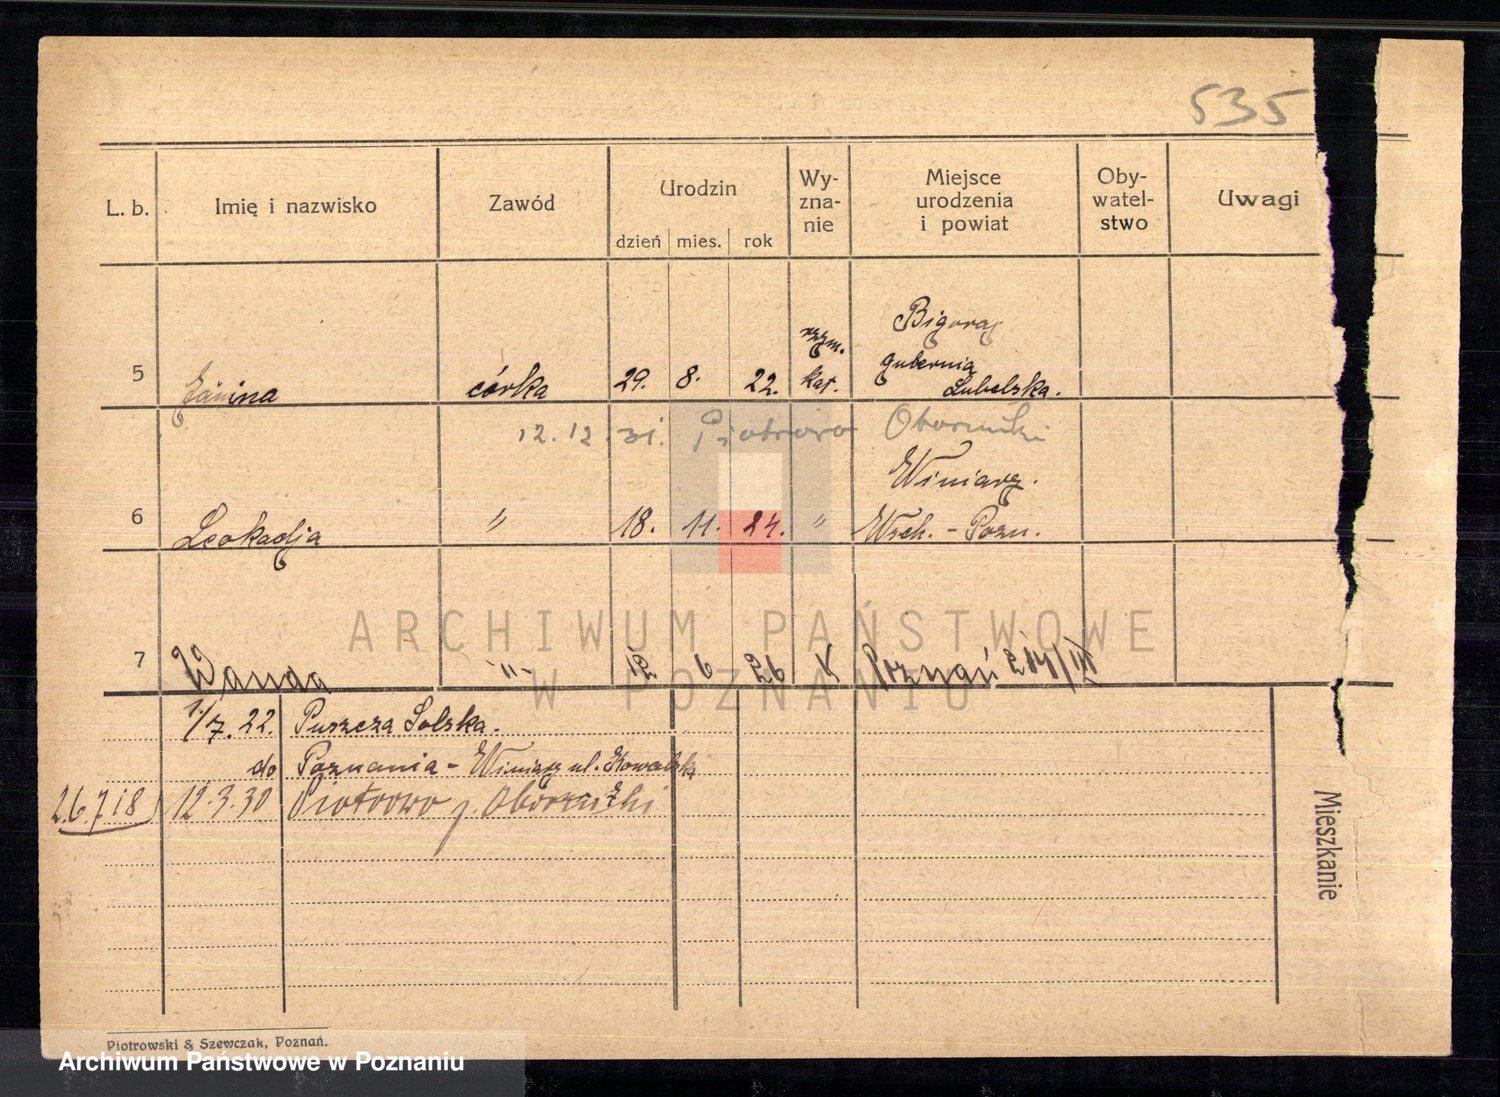 535
L. b.
Imię i nazwisko
Zawód
Urodzin
dzień mies. rok
Wy-
zna-
nie
Miejsce
urodzenia
i powiat
Oby-
watel-
stwo
Uwagi
5 Janina córka 29. 8. 22. rzym. kat.
Bigoraj
gubernia
Lubelska.
12.12.31. Piotrowo Oborniki
Winiary.
6 Leokadja " 18. 11. 24. " Wsch. - Pozn.
ARCHIWUM PAŃSTWOWE
W POZNANIU
7 Wanda -"- 12 6 26 K Poznań
1/7. 22. Puszcza Solska.
do Poznania - Winiary ul. Kowalska
26.718 12.3.30 Piotrowo p. Oborniki
Mieszkanie
Piotrowski & Szewczak, Poznań.
Archiwum Państwowe w Poznaniu